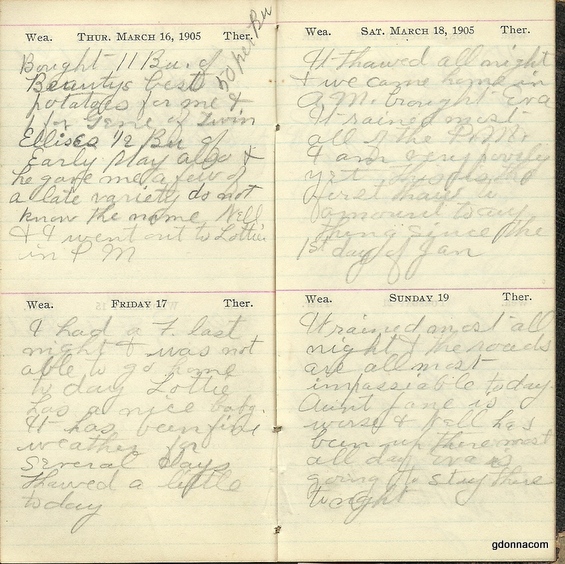 Wea. THUR. MARCH 16, 1905 Ther.
50 per Bu
Bought 11 Bu. of
Beautys best
potatoes for me &
1 for Gene of Irwin
Ellises 1/2 Bu of
Early May also &
he gave me a few of
a late variety do not
know the name Nell
& I went out to Lottie
in P M
Wea. FRIDAY 17 Ther.
I had a F. last
night & was not
able to go home
to day Lottie
has a nice baby.
It has been fine
weather for
several days
thawed a little
today
Wea. SAT. MARCH 18, 1905 Ther.
It thawed all night
& we came home in
A.M. brought Eva
It rained most
all of the P.M.
I am very poorly
yet this is the
first thaw to
amount to any
thing since the
1st day of Jan
Wea. SUNDAY 19 Ther.
It rained most all
night & the roads
are all most
impassiable to day
Aunt Jane is
worse & Nell has
been up there most
all day Eva is
going to stay there
to night
gdonnacom